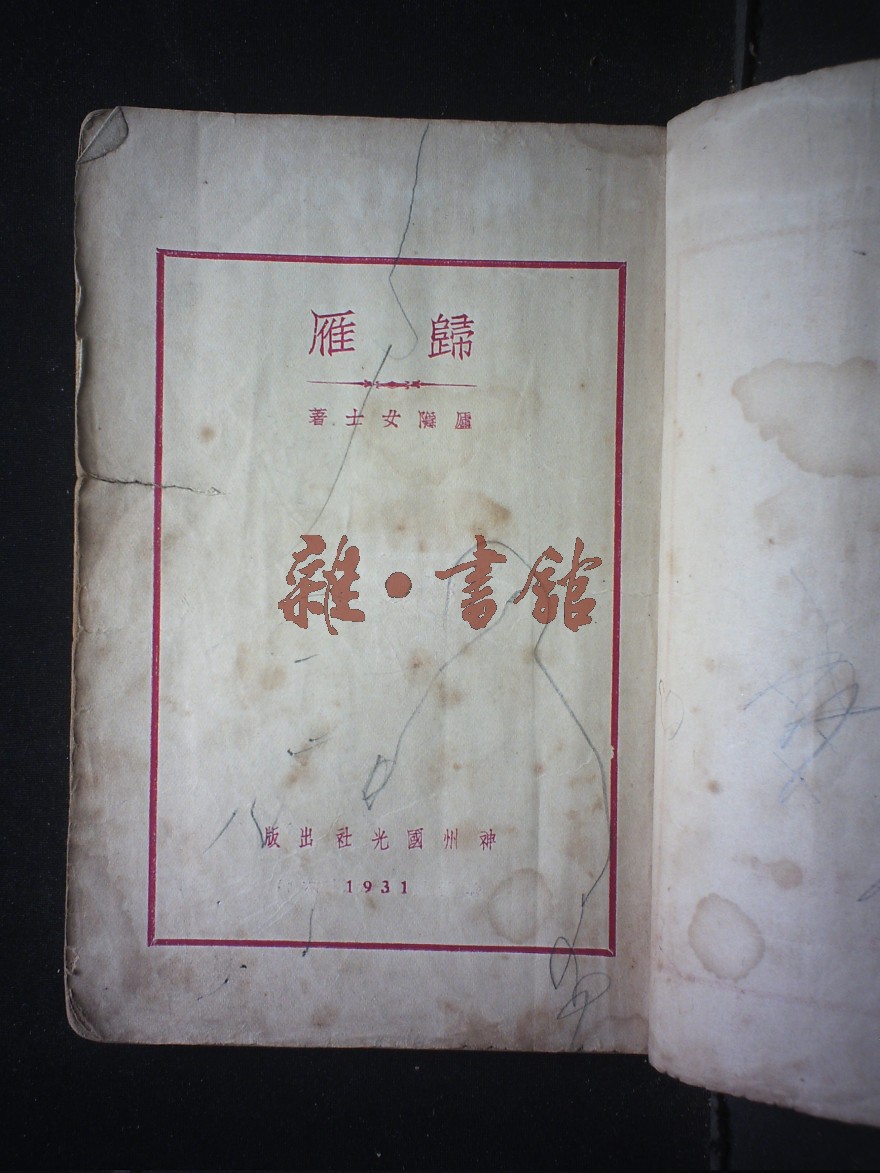 歸雁
廬隱女士著
雜•書館
神州國光社出版
1931